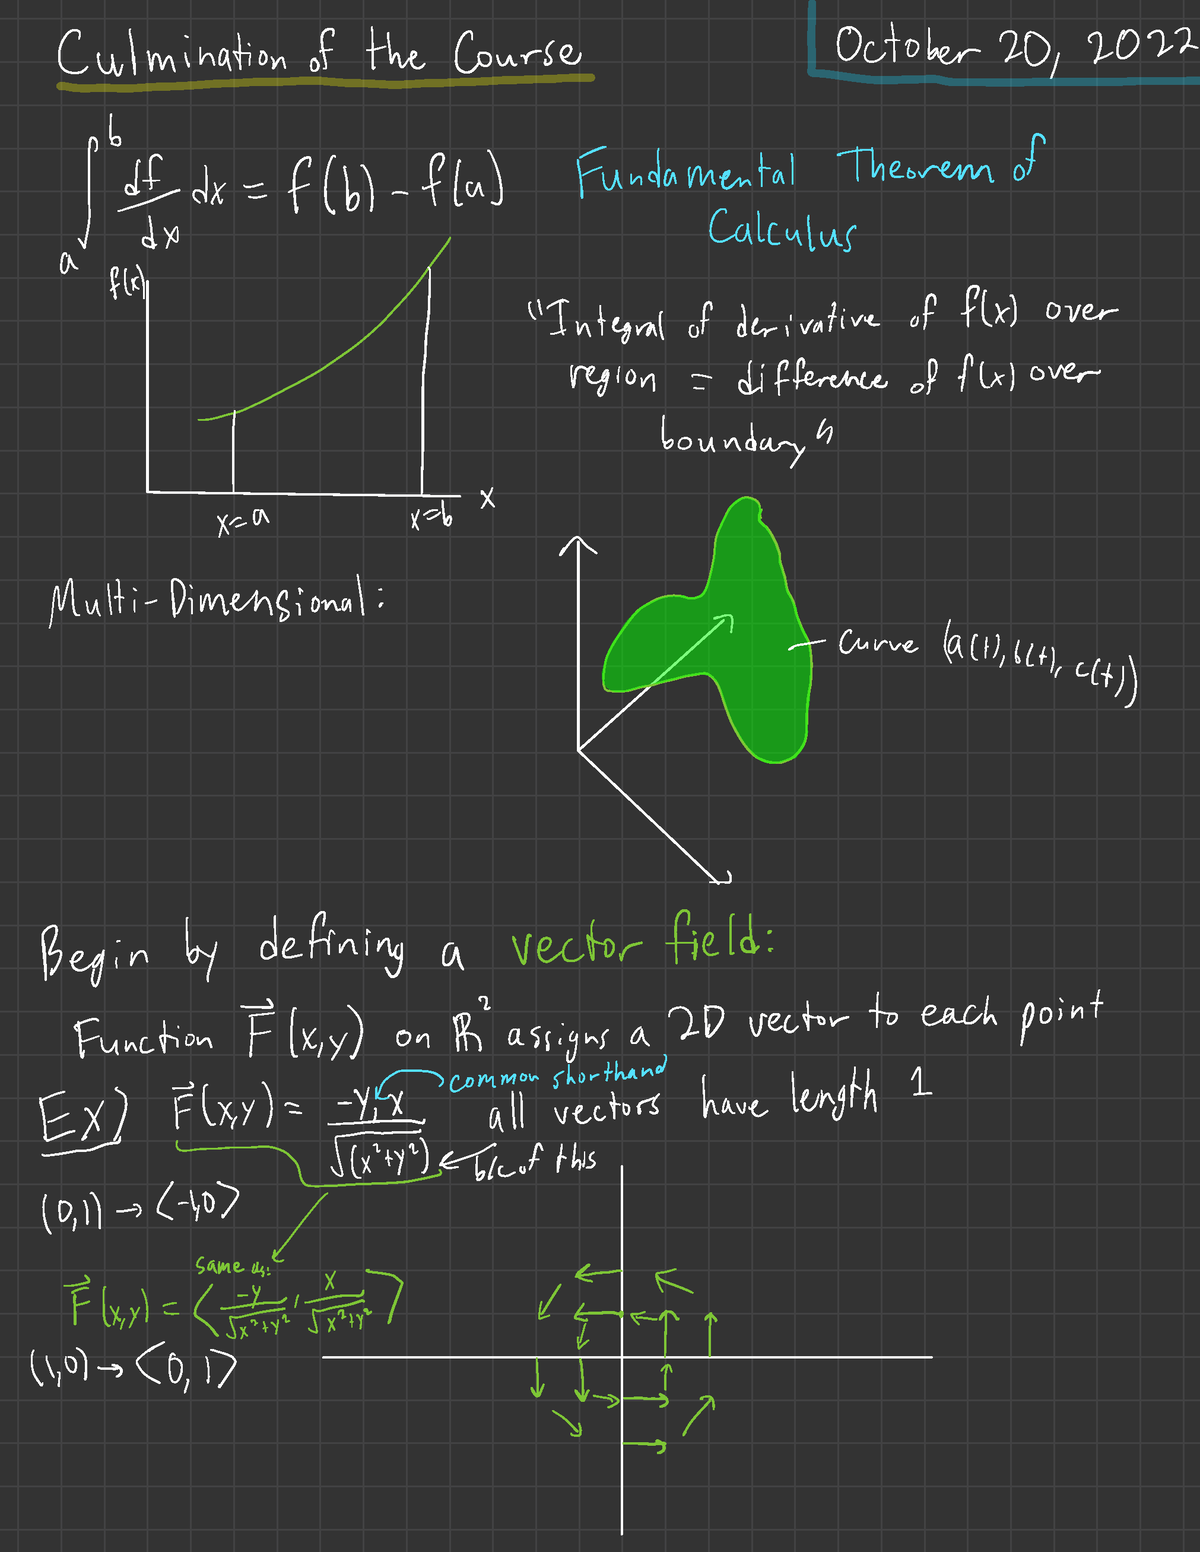 Culmination of the Course
October 20, 2022
∫_a^b df/dx dx = f(b) - f(a)
Fundamental Theorem of
Calculus
f(x)
x=a
x=b
x
"Integral of derivative of f(x) over
region = difference of f(x) over
boundary"
Multi-Dimensional:
curve (a(t), b(t), c(t))
Begin by defining a vector field:
Function F⃗(x,y) on ℝ² assigns a 2D vector to each point
common shorthand
Ex) F⃗(x,y) = -y, x / √(x²+y²) all vectors have length 1
b/c of this
(0,1) → <-1,0>
same as:
F⃗(x,y) = <-y/√(x²+y²), x/√(x²+y²)>
(1,0) → <0,1>